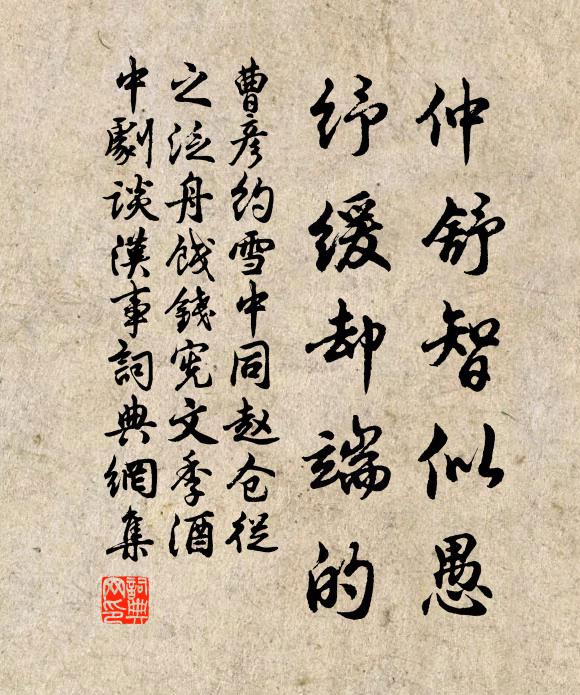 仲舒智似愚
纾缓却端的
曹彦约雪中同赵仓従
之泛舟饯錢宪文季酒
中劇谈漢事詞典網集
詞典
网印